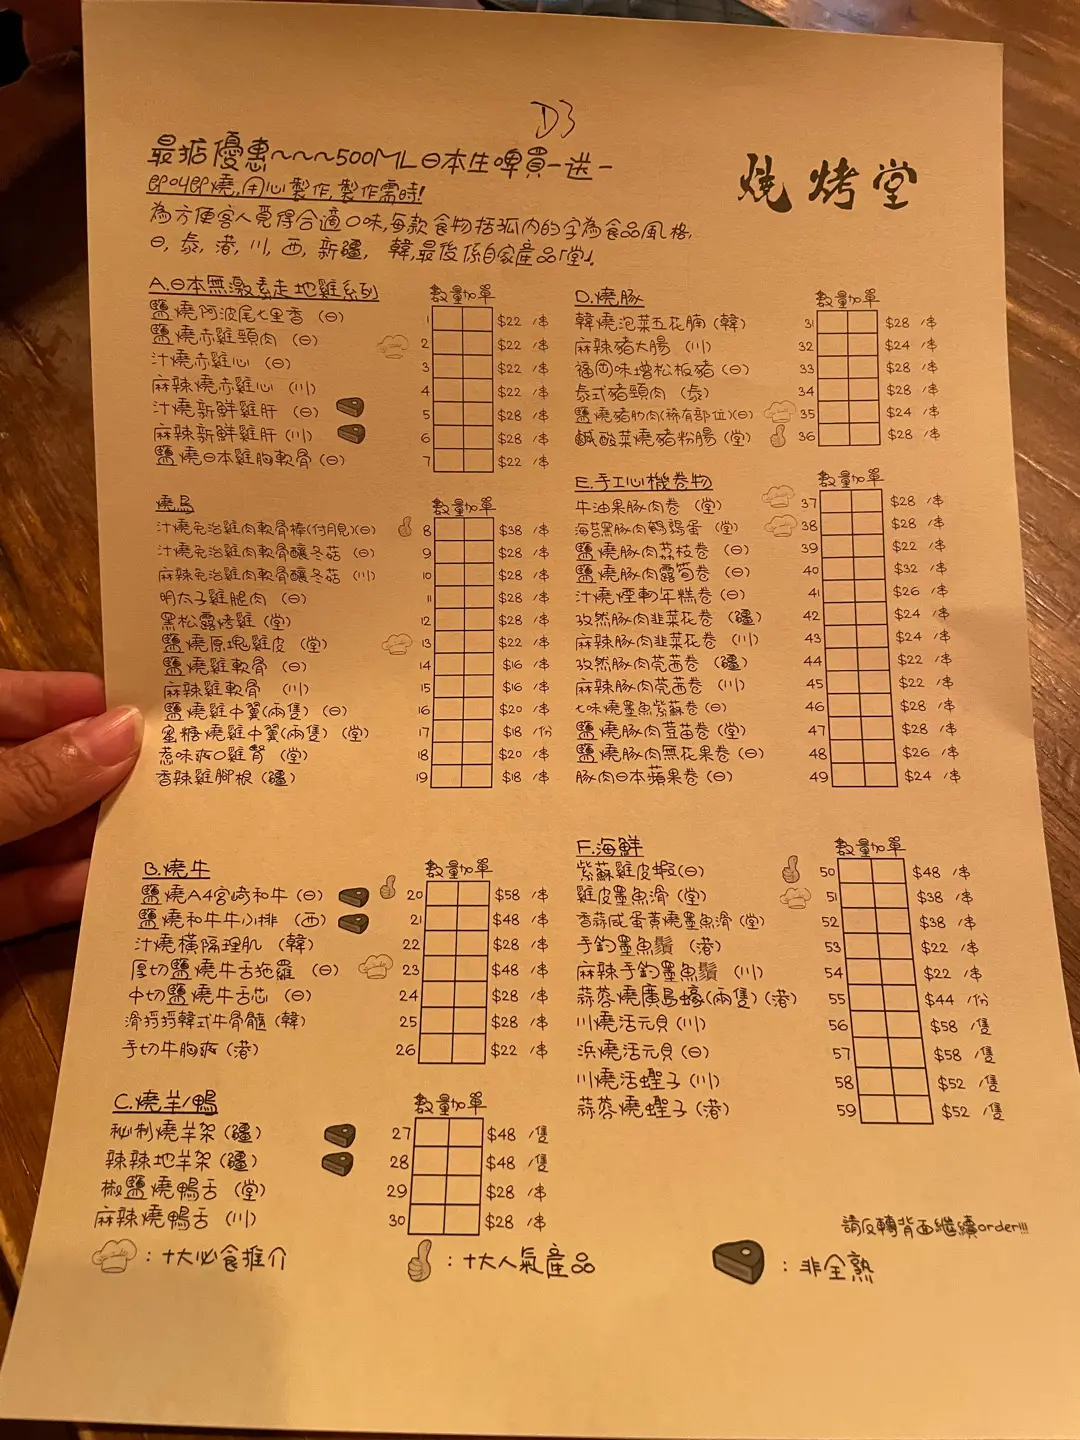 D3
最掂優惠~~~500ML日本生啤買一送一
燒烤堂
即叫即燒,用心製作,製作需時!
為方便客人覓得合適口味,每款食物括弧內的字為食品風格,
日, 泰, 港, 川, 西, 新疆, 韓,最後係自家產品「堂」。
A.日本無激素走地雞系列 數量加單
鹽燒阿波尾七里香 (日) 1 $22 /串
鹽燒赤雞頸肉 (日) 2 $22 /串
汁燒赤雞心 (日) 3 $22 /串
麻辣燒赤雞心 (川) 4 $22 /串
汁燒新鮮雞肝 (日) 5 $28 /串
麻辣新鮮雞肝 (川) 6 $28 /串
鹽燒日本雞胸軟骨 (日) 7 $22 /串
燒鳥 數量加單
汁燒免治雞肉軟骨棒(付月見)(日) 8 $38 /串
汁燒免治雞肉軟骨釀冬菇 (日) 9 $28 /串
麻辣免治雞肉軟骨釀冬菇 (川) 10 $28 /串
明太子雞腿肉 (日) 11 $28 /串
黑松露烤雞 (堂) 12 $28 /串
鹽燒原塊雞皮 (堂) 13 $22 /串
鹽燒雞軟骨 (日) 14 $16 /串
麻辣雞軟骨 (川) 15 $16 /串
鹽燒雞中翼(兩隻) (日) 16 $20 /串
蜜糖燒雞中翼(兩隻) (堂) 17 $18 /份
惹味爽口雞腎 (堂) 18 $20 /串
香辣雞腳根 (疆) 19 $18 /串
B.燒牛 數量加單
鹽燒A4宮崎和牛 (日) 20 $58 /串
鹽燒和牛牛小排 (西) 21 $48 /串
汁燒橫隔理肌 (韓) 22 $28 /串
厚切鹽燒牛舌拖羅 (日) 23 $48 /串
中切鹽燒牛舌芯 (日) 24 $28 /串
滑捋捋韓式牛骨髓 (韓) 25 $28 /串
手切牛胸爽 (港) 26 $22 /串
C.燒羊/鴨 數量加單
秘制燒羊架 (疆) 27 $48 /隻
辣辣地羊架 (疆) 28 $48 /隻
椒鹽燒鴨舌 (堂) 29 $28 /串
麻辣燒鴨舌 (川) 30 $28 /串
D.燒豚 數量加單
韓燒泡菜五花腩 (韓) 31 $28 /串
麻辣豬大腸 (川) 32 $24 /串
福岡味增松板豬 (日) 33 $28 /串
泰式豬頸肉 (泰) 34 $28 /串
鹽燒豬肋肉(稀有部位)(日) 35 $24 /串
鹹酸菜燒豬粉腸 (堂) 36 $28 /串
E.手工心機卷物 數量加單
牛油果豚肉卷 (堂) 37 $28 /串
海苔黑豚肉鵪鶉蛋 (堂) 38 $28 /串
鹽燒豚肉荔枝卷 (日) 39 $22 /串
鹽燒豚肉露筍卷 (日) 40 $32 /串
汁燒煙鴨年糕卷 (日) 41 $26 /串
孜然豚肉韭菜花卷 (疆) 42 $24 /串
麻辣豚肉韭菜花卷 (川) 43 $24 /串
孜然豚肉莞茜卷 (疆) 44 $22 /串
麻辣豚肉莞茜卷 (川) 45 $22 /串
七味燒墨魚紫蘇卷 (日) 46 $28 /串
鹽燒豚肉荳苗卷 (堂) 47 $28 /串
鹽燒豚肉無花果卷 (日) 48 $26 /串
豚肉日本蘋果卷 (日) 49 $24 /串
F.海鮮 數量加單
紫蘇雞皮蝦(日) 50 $48 /串
雞皮墨魚滑 (堂) 51 $38 /串
香蒜咸蛋黃燒墨魚滑 (堂) 52 $38 /串
手釣墨魚鬚 (港) 53 $22 /串
麻辣手釣墨魚鬚 (川) 54 $22 /串
蒜蓉燒廣島蠔(兩隻) (港) 55 $44 /份
川燒活元貝 (川) 56 $58 /隻
浜燒活元貝 (日) 57 $58 /隻
川燒活蟶子 (川) 58 $52 /隻
蒜蓉燒蟶子 (港) 59 $52 /隻
請反轉背面繼續order!!!
: 十大必食推介
: 十大人氣產品
: 非全熟